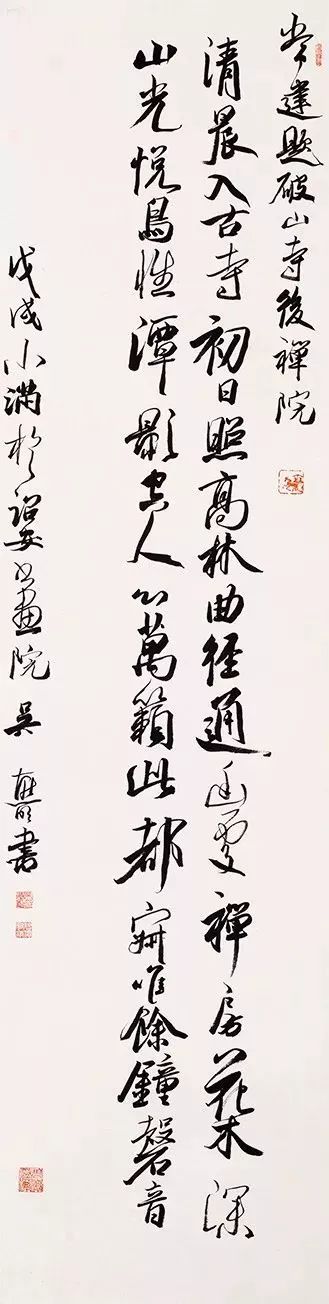 常建題破山寺後禪院
清晨入古寺初日照高林曲徑通幽處禪房花木深
山光悦鳥性潭影空人心萬籟此都寂唯餘鐘磬音
戊戌小滿於書畫院 吳書